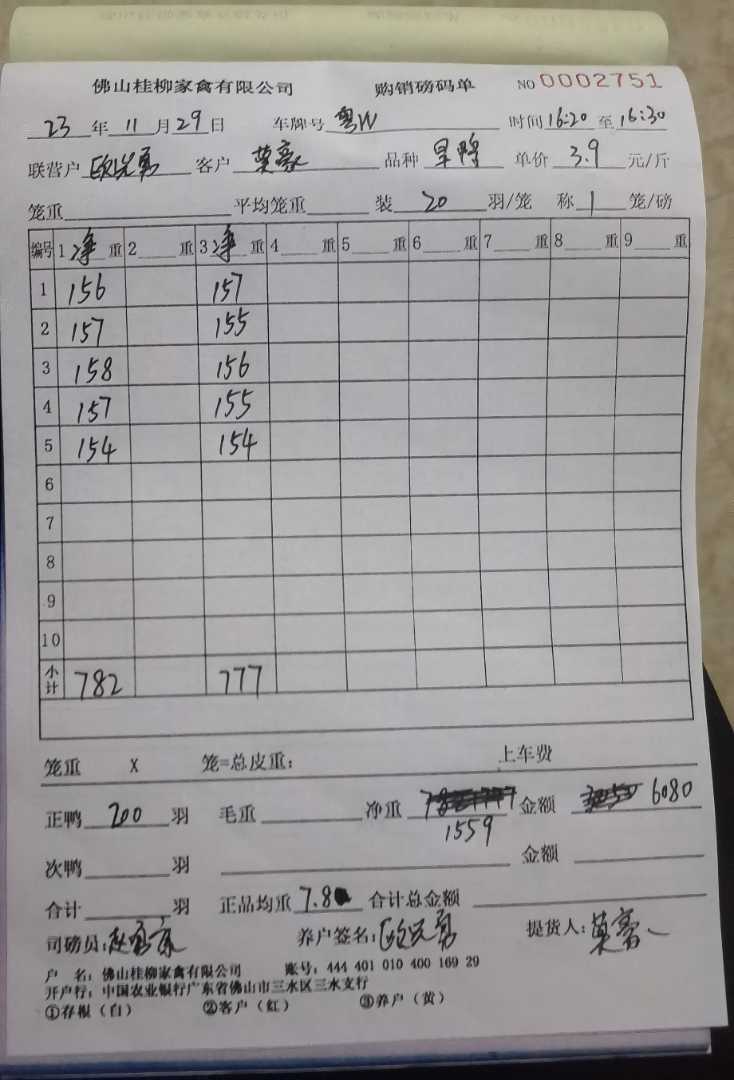 佛山桂柳家禽有限公司 购销磅码单 NO 0002751
23 年 11 月 29 日 车牌号 粤W 时间 16:20 至 16:30
联营户 欧兴勇 客户 莫豪 品种 旱鸭 单价 3.9 元/斤
笼重 平均笼重 装 20 羽/笼 称 1 笼/磅
编号 1 净 重 2 重 3 净 重 4 重 5 重 6 重 7 重 8 重 9 重
1 156 157
2 157 155
3 158 156
4 157 155
5 154 154
6
7
8
9
10
小计 782 777
笼重 X 笼=总皮重: 上车费
正鸭 200 羽 毛重 净重 1559 金额 6080
次鸭 羽 金额
合计 羽 正品均重 7.8 合计总金额
司磅员: 养户签名: 欧兴勇 提货人: 莫豪
户 名: 佛山桂柳家禽有限公司 账号: 444 401 010 400 169 29
开户行: 中国农业银行广东省佛山市三水区三水支行
①存根(白) ②客户(红) ③养户(黄)